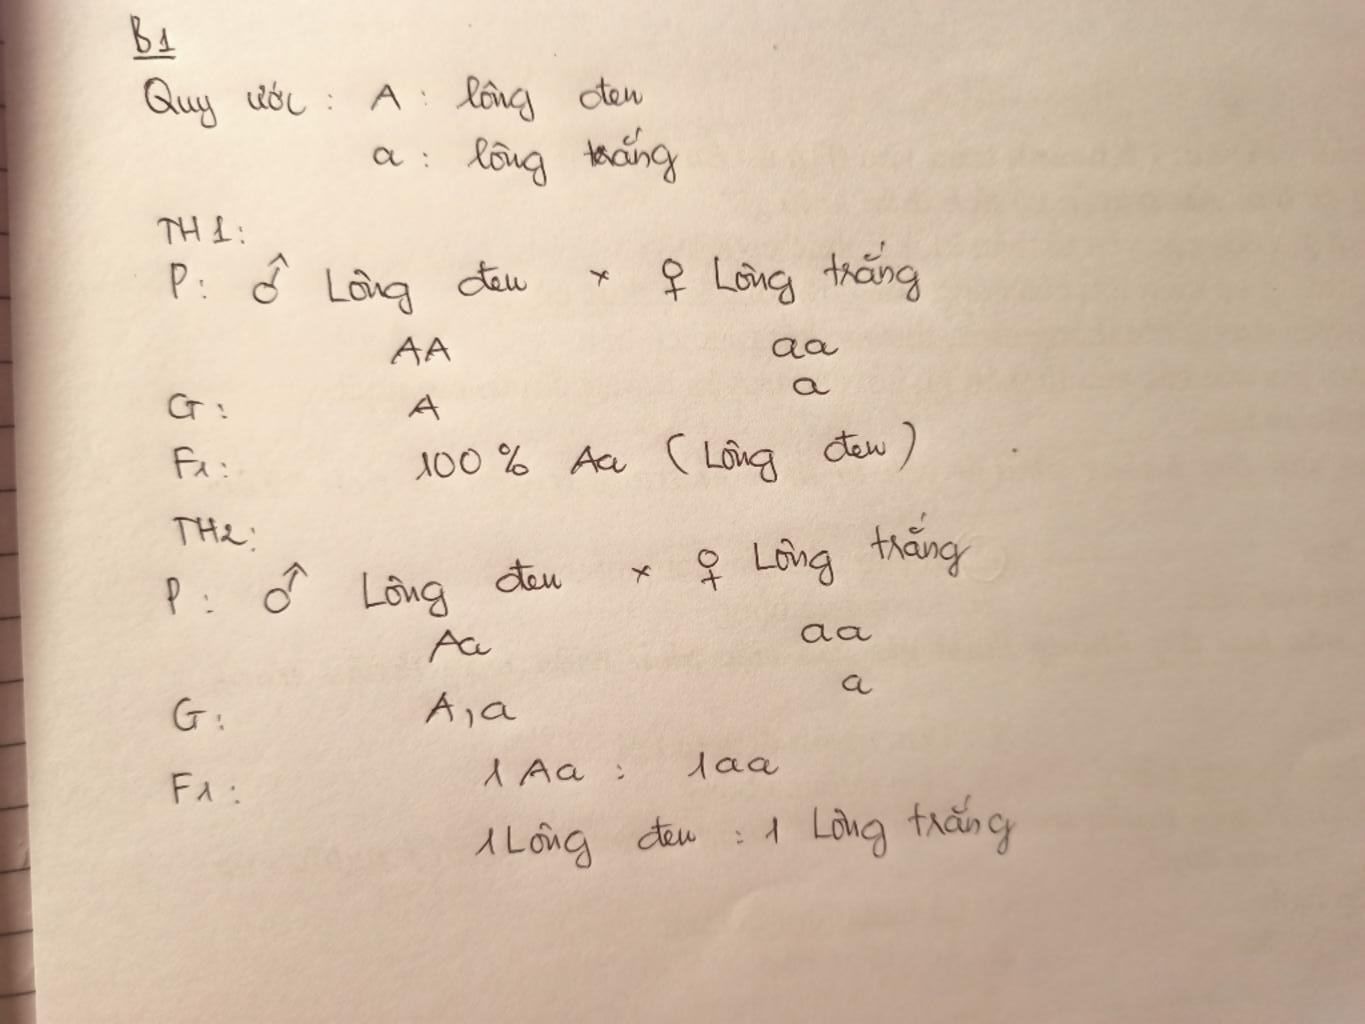 B1
Quy ước : A : lông đen
a : lông trắng
TH1:
P: ♂ Lông đen × ♀ Lông trắng
AA aa
G: A a
F1: 100% Aa (Lông đen)
TH2:
P: ♂ Lông đen × ♀ Lông trắng
Aa aa
G: A, a a
F1: 1 Aa : 1aa
1 Lông đen : 1 Lông trắng